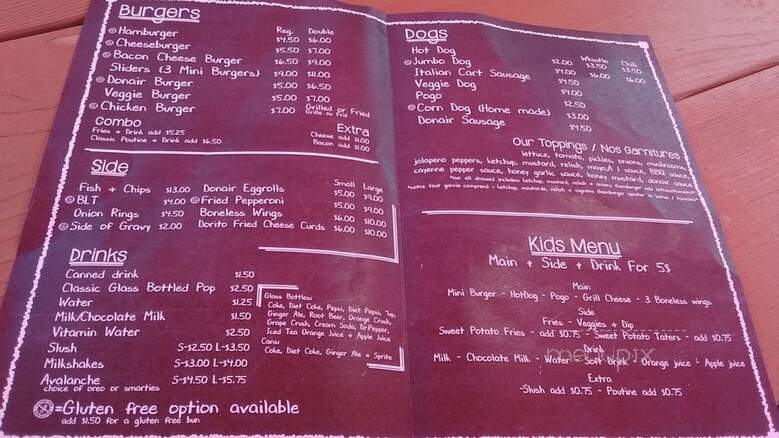 Burgers
Reg. Double
Hamburger $4.50 $6.00
Cheeseburger $5.50 $7.00
Bacon Cheese Burger $6.50 $9.00
Sliders (3 Mini Burgers) $9.00 $11.00
Donair Burger $5.00 $6.50
Veggie Burger $5.00 $7.00
Chicken Burger $7.00 Grilled or Fried
Combo
Fries + Drink add $5.25
Classic Poutine + Drink add $6.50
Extra
Cheese add $1.00
Bacon add $1.00
Side
Small Large
Fish + Chips $13.00 Donair Eggrolls $5.00 $9.00
BLT $4.00 Fried Pepperoni $5.00 $9.00
Onion Rings $4.50 Boneless Wings $6.00 $10.00
Side of Gravy $2.00 Dorito Fried Cheese Curds $6.00 $10.00
Drinks
Canned drink $1.50
Classic Glass Bottled Pop $2.50
Water $1.25
Milk/Chocolate Milk $1.50
Vitamin Water $2.50
Slush S-$2.50 L-$3.50
Milkshakes S-$3.00 L-$4.00
Avalanche S-$4.50 L-$5.75
choice of oreo or smarties
Glass Bottles:
Coke, Diet Coke, Pepsi, Diet Pepsi, 7up,
Ginger Ale, Root Beer, Orange Crush,
Grape Crush, Cream Soda, Dr.Pepper,
Iced Tea Orange Juice + Apple Juice
Cans:
Coke, Diet Coke, Ginger Ale + Sprite
=Gluten free option available
add $1.50 for a gluten free bun
Dogs
Whistle Chili
Hot Dog $2.00 $3.50 $3.50
Jumbo Dog $4.00 $6.00 $6.00
Italian Cart Sausage $4.50
Veggie Dog $4.00
Pogo $2.50
Corn Dog (Home made) $3.00
Donair Sausage $4.50
Our Toppings / Nos Garnitures
lettuce, tomato, pickles, onions, mushrooms,
jalapeno peppers, ketchup, mustard, relish, mayo, A1 sauce, BBQ sauce,
cayenne pepper sauce, honey garlic sauce, honey mustard, donair sauce
Kids Menu
Main + Side + Drink For 5$
Main
Mini Burger - HotDog - Pogo - Grill Cheese - 3 Boneless wings
Side
Fries - Veggies + Dip
Sweet Potato Fries - add $0.75 - Sweet Potato Taters - add $0.75
Drink
Milk - Chocolate Milk - Water - Soft Drink - Orange juice - Apple juice
Extra
-Slush add $0.75 - Poutine add $0.75
menupix